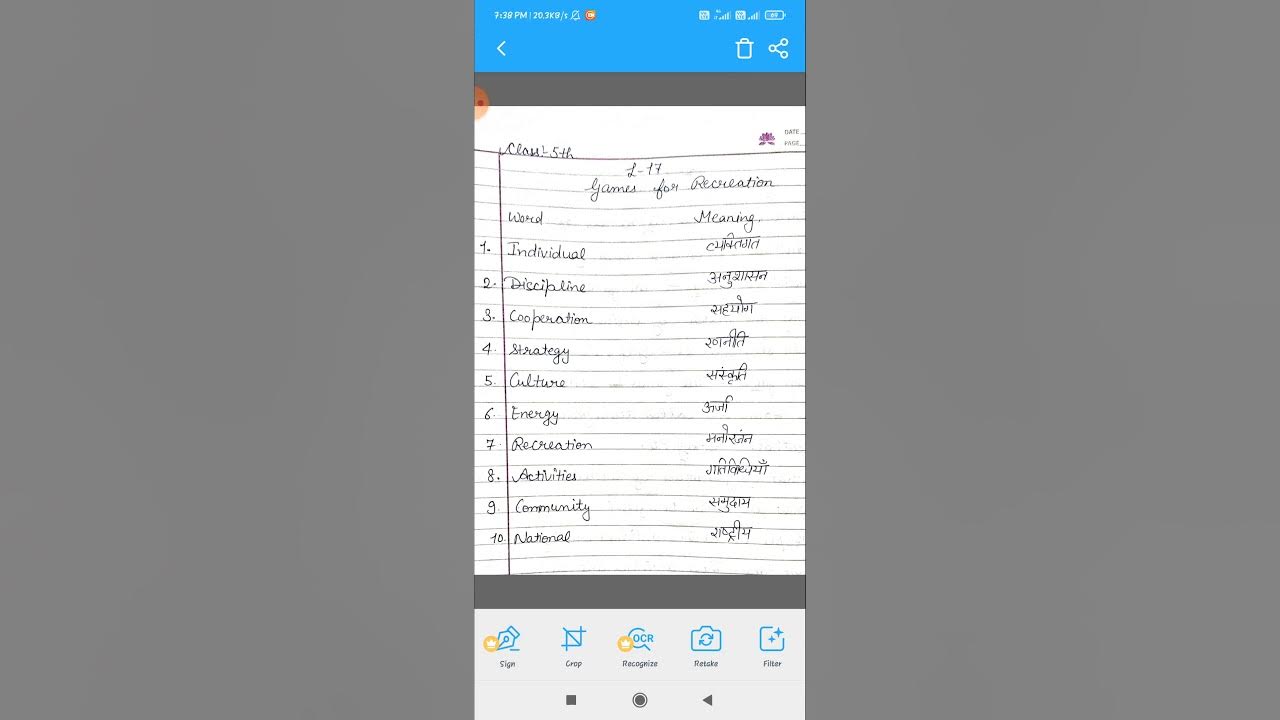 7:38 PM | 20.3KB/s
69
DATE
PAGE
Class-5th
L-17
Games for Recreation
Word Meaning.
1. Individual व्यक्तिगत
2. Discipline अनुशासन
3. Cooperation सहयोग
4. Strategy रणनीति
5. Culture संस्कृति
6. Energy ऊर्जा
7. Recreation मनोरंजन
8. Activities गतिविधियाँ
9. Community समुदाय
10. National राष्ट्रीय
OCR
Sign Crop Recognize Retake Filter